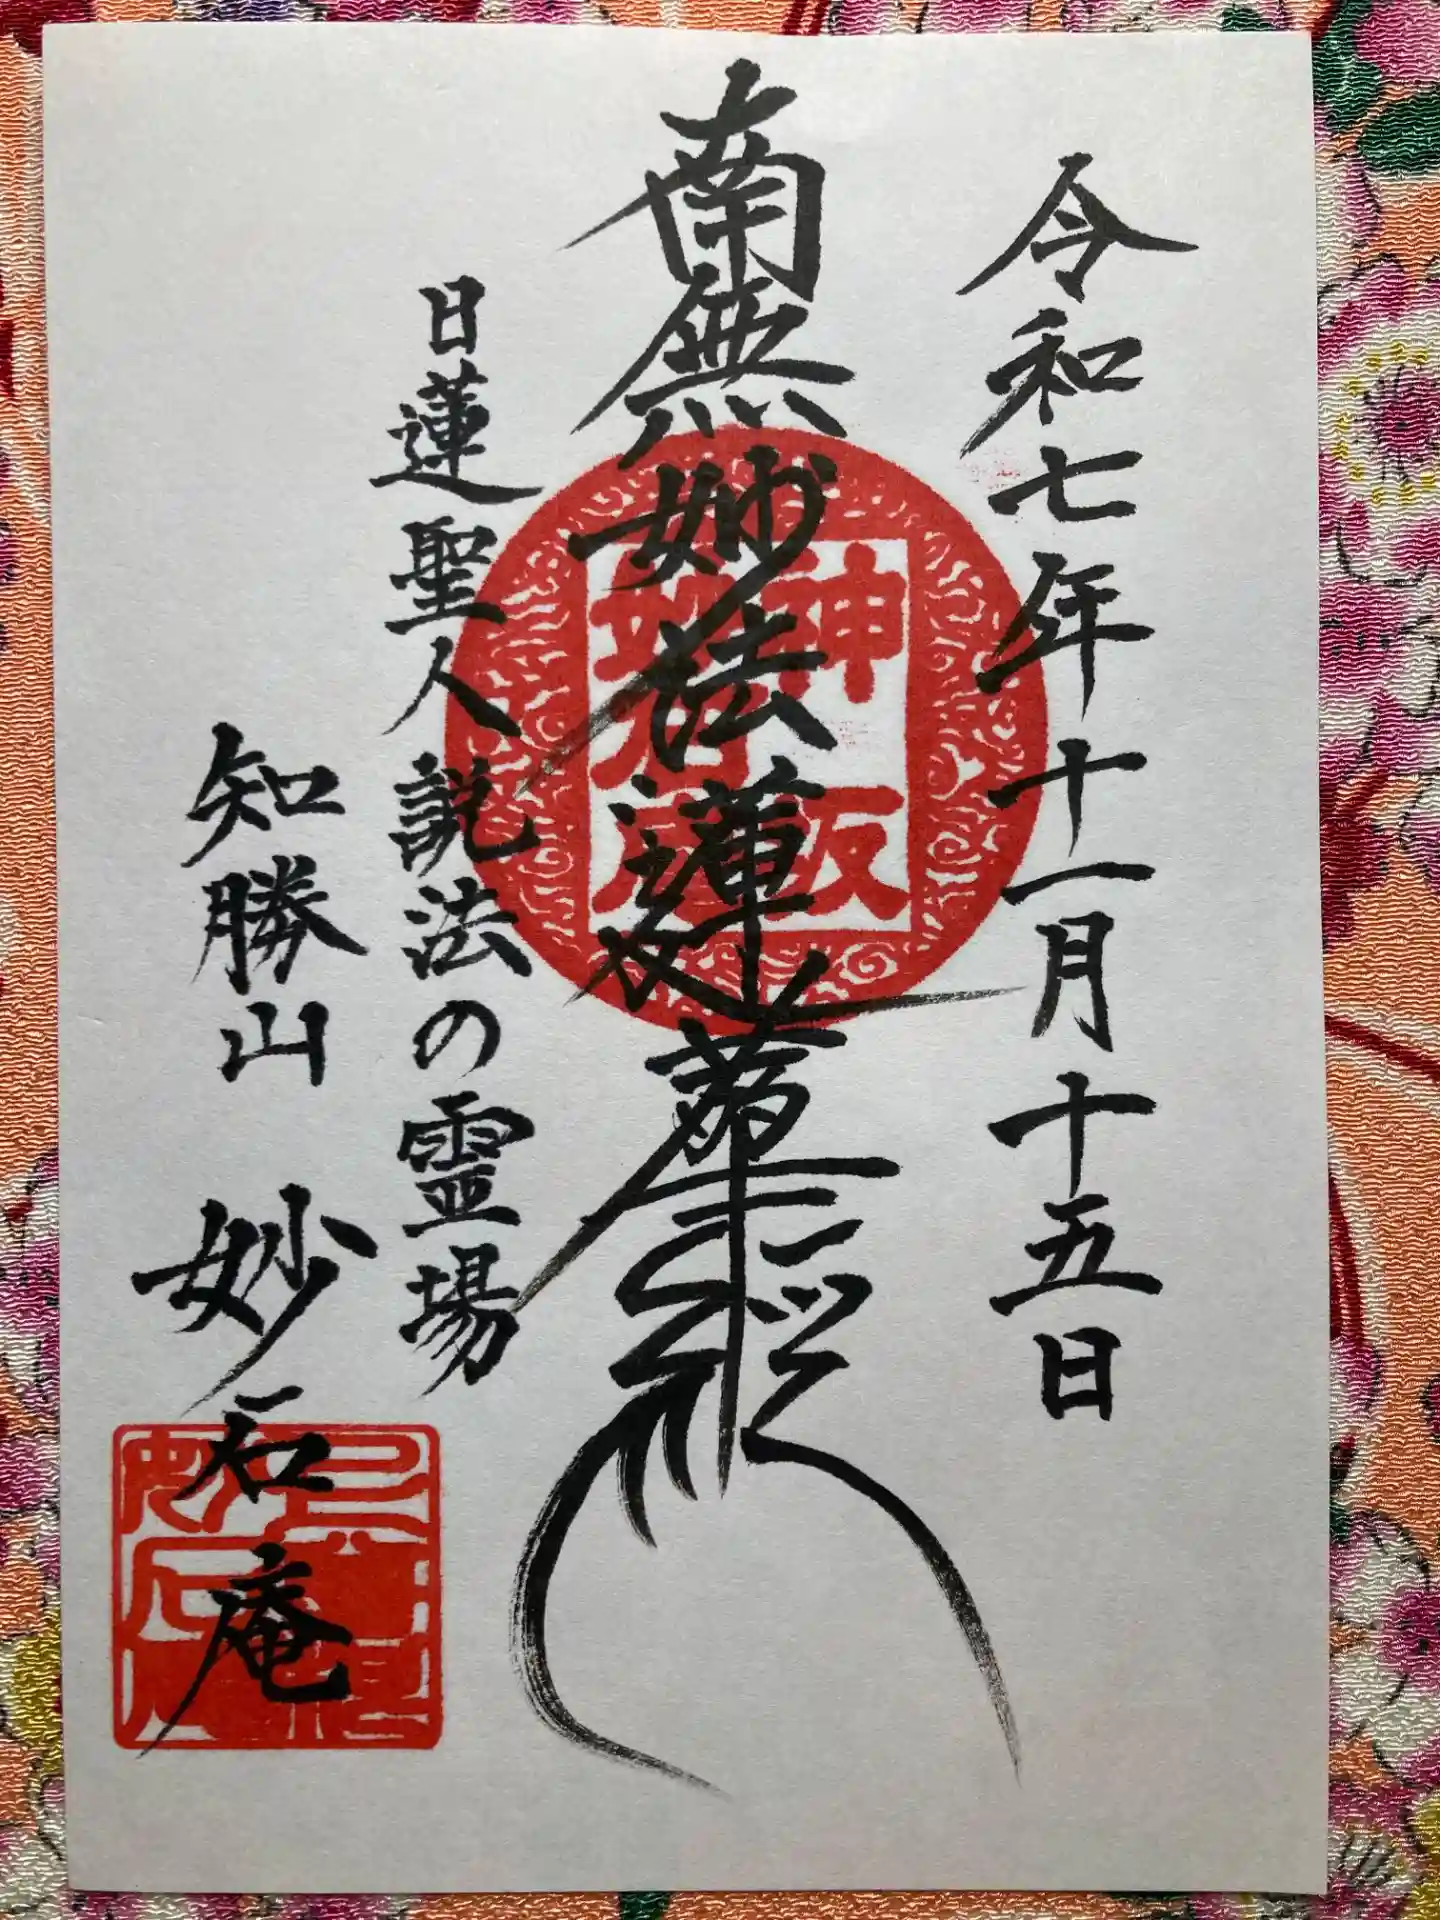 令和七年十一月十五日
南無妙法蓮華経
日蓮聖人説法の霊場
知勝山 妙石庵
神坂
妙石庵